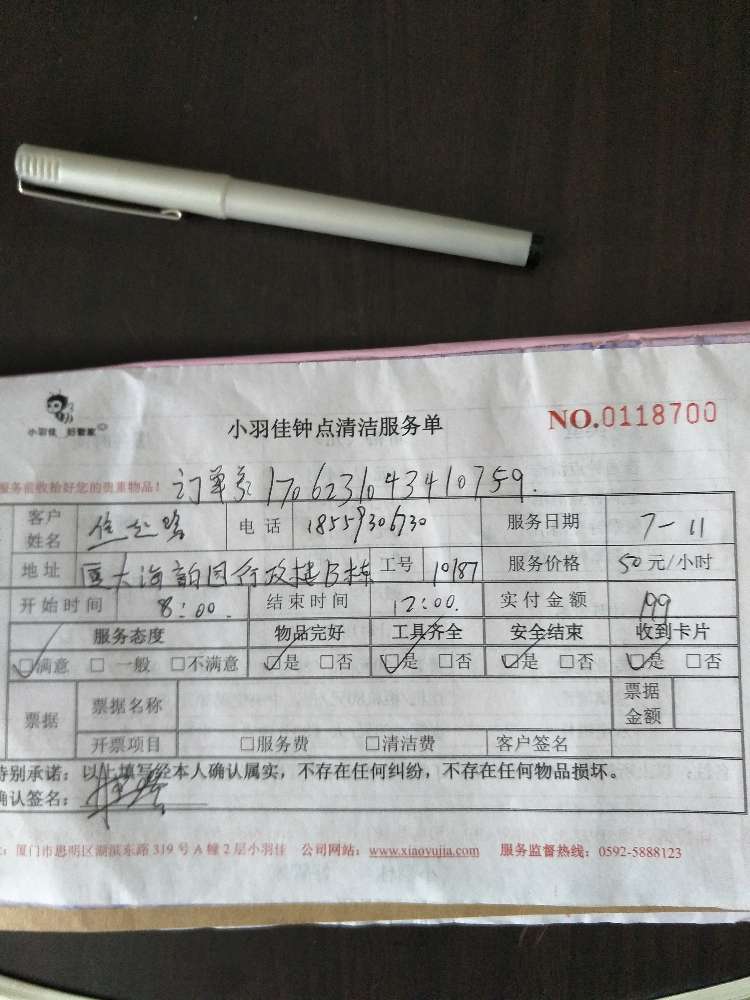 小羽佳 好管家
小羽佳钟点清洁服务单
NO.0118700
服务前收拾好您的贵重物品!
订单号:1706231043410759.
客户姓名 电话 18559306730 服务日期 7-11
地址 厦大海韵园行政楼B栋 工号 10187 服务价格 50元/小时
开始时间 8:00. 结束时间 12:00. 实付金额 199
服务态度 物品完好 工具齐全 安全结束 收到卡片
☑满意 □ 一般 □不满意 ☑是 □否 ☑是 □否 ☑是 □否 ☑是 □否
票据 票据名称 票据金额
开票项目 □服务费 □清洁费 客户签名
特别承诺:以上填写经本人确认属实,不存在任何纠纷,不存在任何物品损坏。
确认签名:
厦门市思明区湖滨东路319号A幢2层小羽佳 公司网站:www.xiaoyujia.com 服务监督热线:0592-5888123